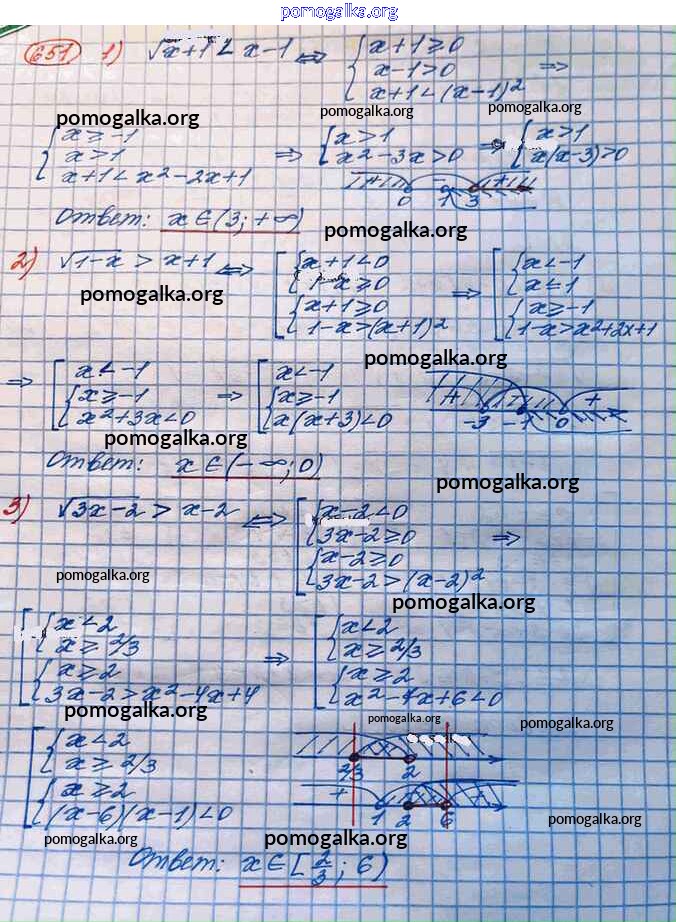 pomogalka.org
651 1) √x+1 < x-1 ⇔ { x+1≥0
x-1>0 ⇒
x+1<(x-1)²
pomogalka.org pomogalka.org pomogalka.org
{ x≥-1 ⇒ { x>1 ⇒ { x>1
x>1 x²-3x>0 x(x-3)>0
x+1<x²-2x+1
+ +
0 1 3
Ответ: x∈(3;+∞)
pomogalka.org
2) √1-x > x+1 ⇔ [ { x+1<0 ⇒ [ { x<-1
1-x≥0 x<1
{ x+1≥0 { x≥-1
1-x>(x+1)² 1-x>x²+2x+1
pomogalka.org
pomogalka.org
⇒ [ x<-1 ⇒ [ x<-1
{ x≥-1 { x≥-1
x²+3x<0 x(x+3)<0
+ +
-3 -1 0
pomogalka.org
Ответ: x∈(-∞;0)
pomogalka.org
3) √3x-2 > x-2 ⇔ [ { x-2<0
3x-2≥0 ⇒
{ x-2≥0
3x-2>(x-2)²
pomogalka.org
pomogalka.org
[ { x<2 ⇒ [ { x<2
x≥2/3 x≥2/3
{ x≥2 { x≥2
3x-2>x²-4x+4 x²-7x+6<0
pomogalka.org pomogalka.org pomogalka.org
[ { x<2
x≥2/3
{ x≥2
(x-6)(x-1)<0
2/3 2
+
1 2 6
pomogalka.org pomogalka.org pomogalka.org
Ответ: x∈[2/3; 6)